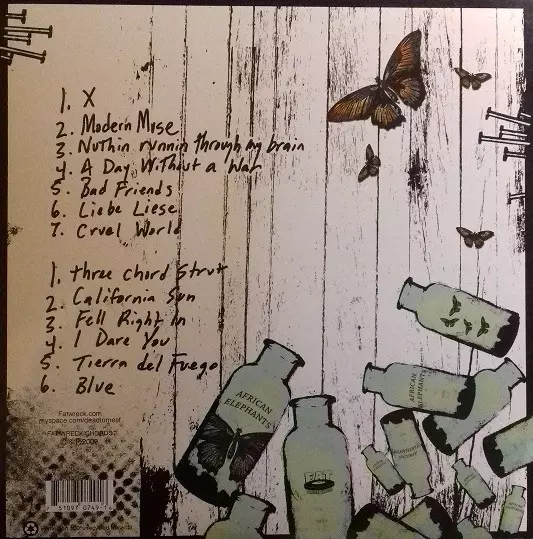 1. X
2. Modern Muse
3. Nuthin runnin through my brain
4. A Day Without a War
5. Bad Friends
6. Liebe Liese
7. Cruel World
1. three chord Strut
2. California Sun
3. Fell Right in
4. I Dare You
5. Tierra del Fuego
6. Blue
Fatwreck.com
myspace.com/deadtorrest
FATWRECKCHORDS
AFRICAN
ELEPHANTS
FAT
AFRICAN
ELEPHANTS